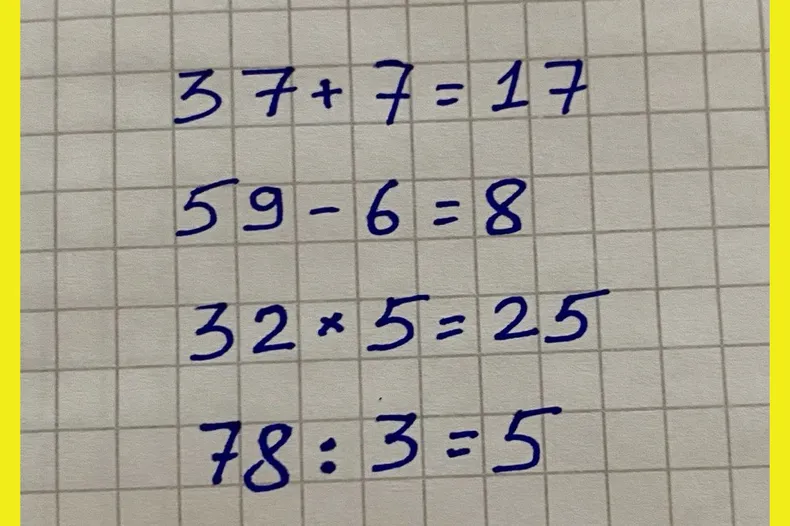 37 + 7 = 17
59 - 6 = 8
32 × 5 = 25
78 : 3 = 5